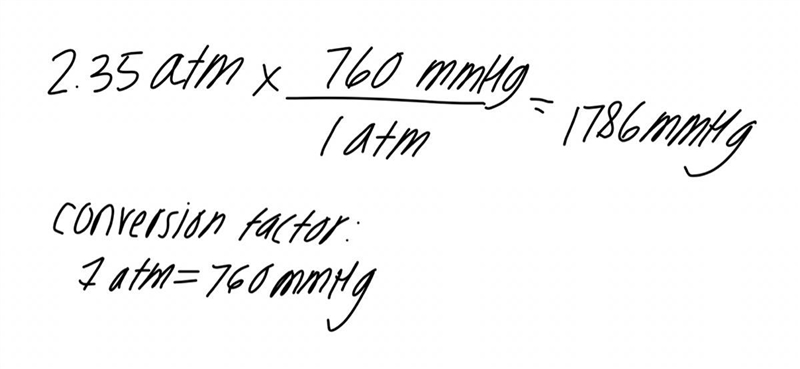 2.35 atm × 760 mmHg / 1 atm = 1786 mmHg
conversion factor:
1 atm = 760 mmHg